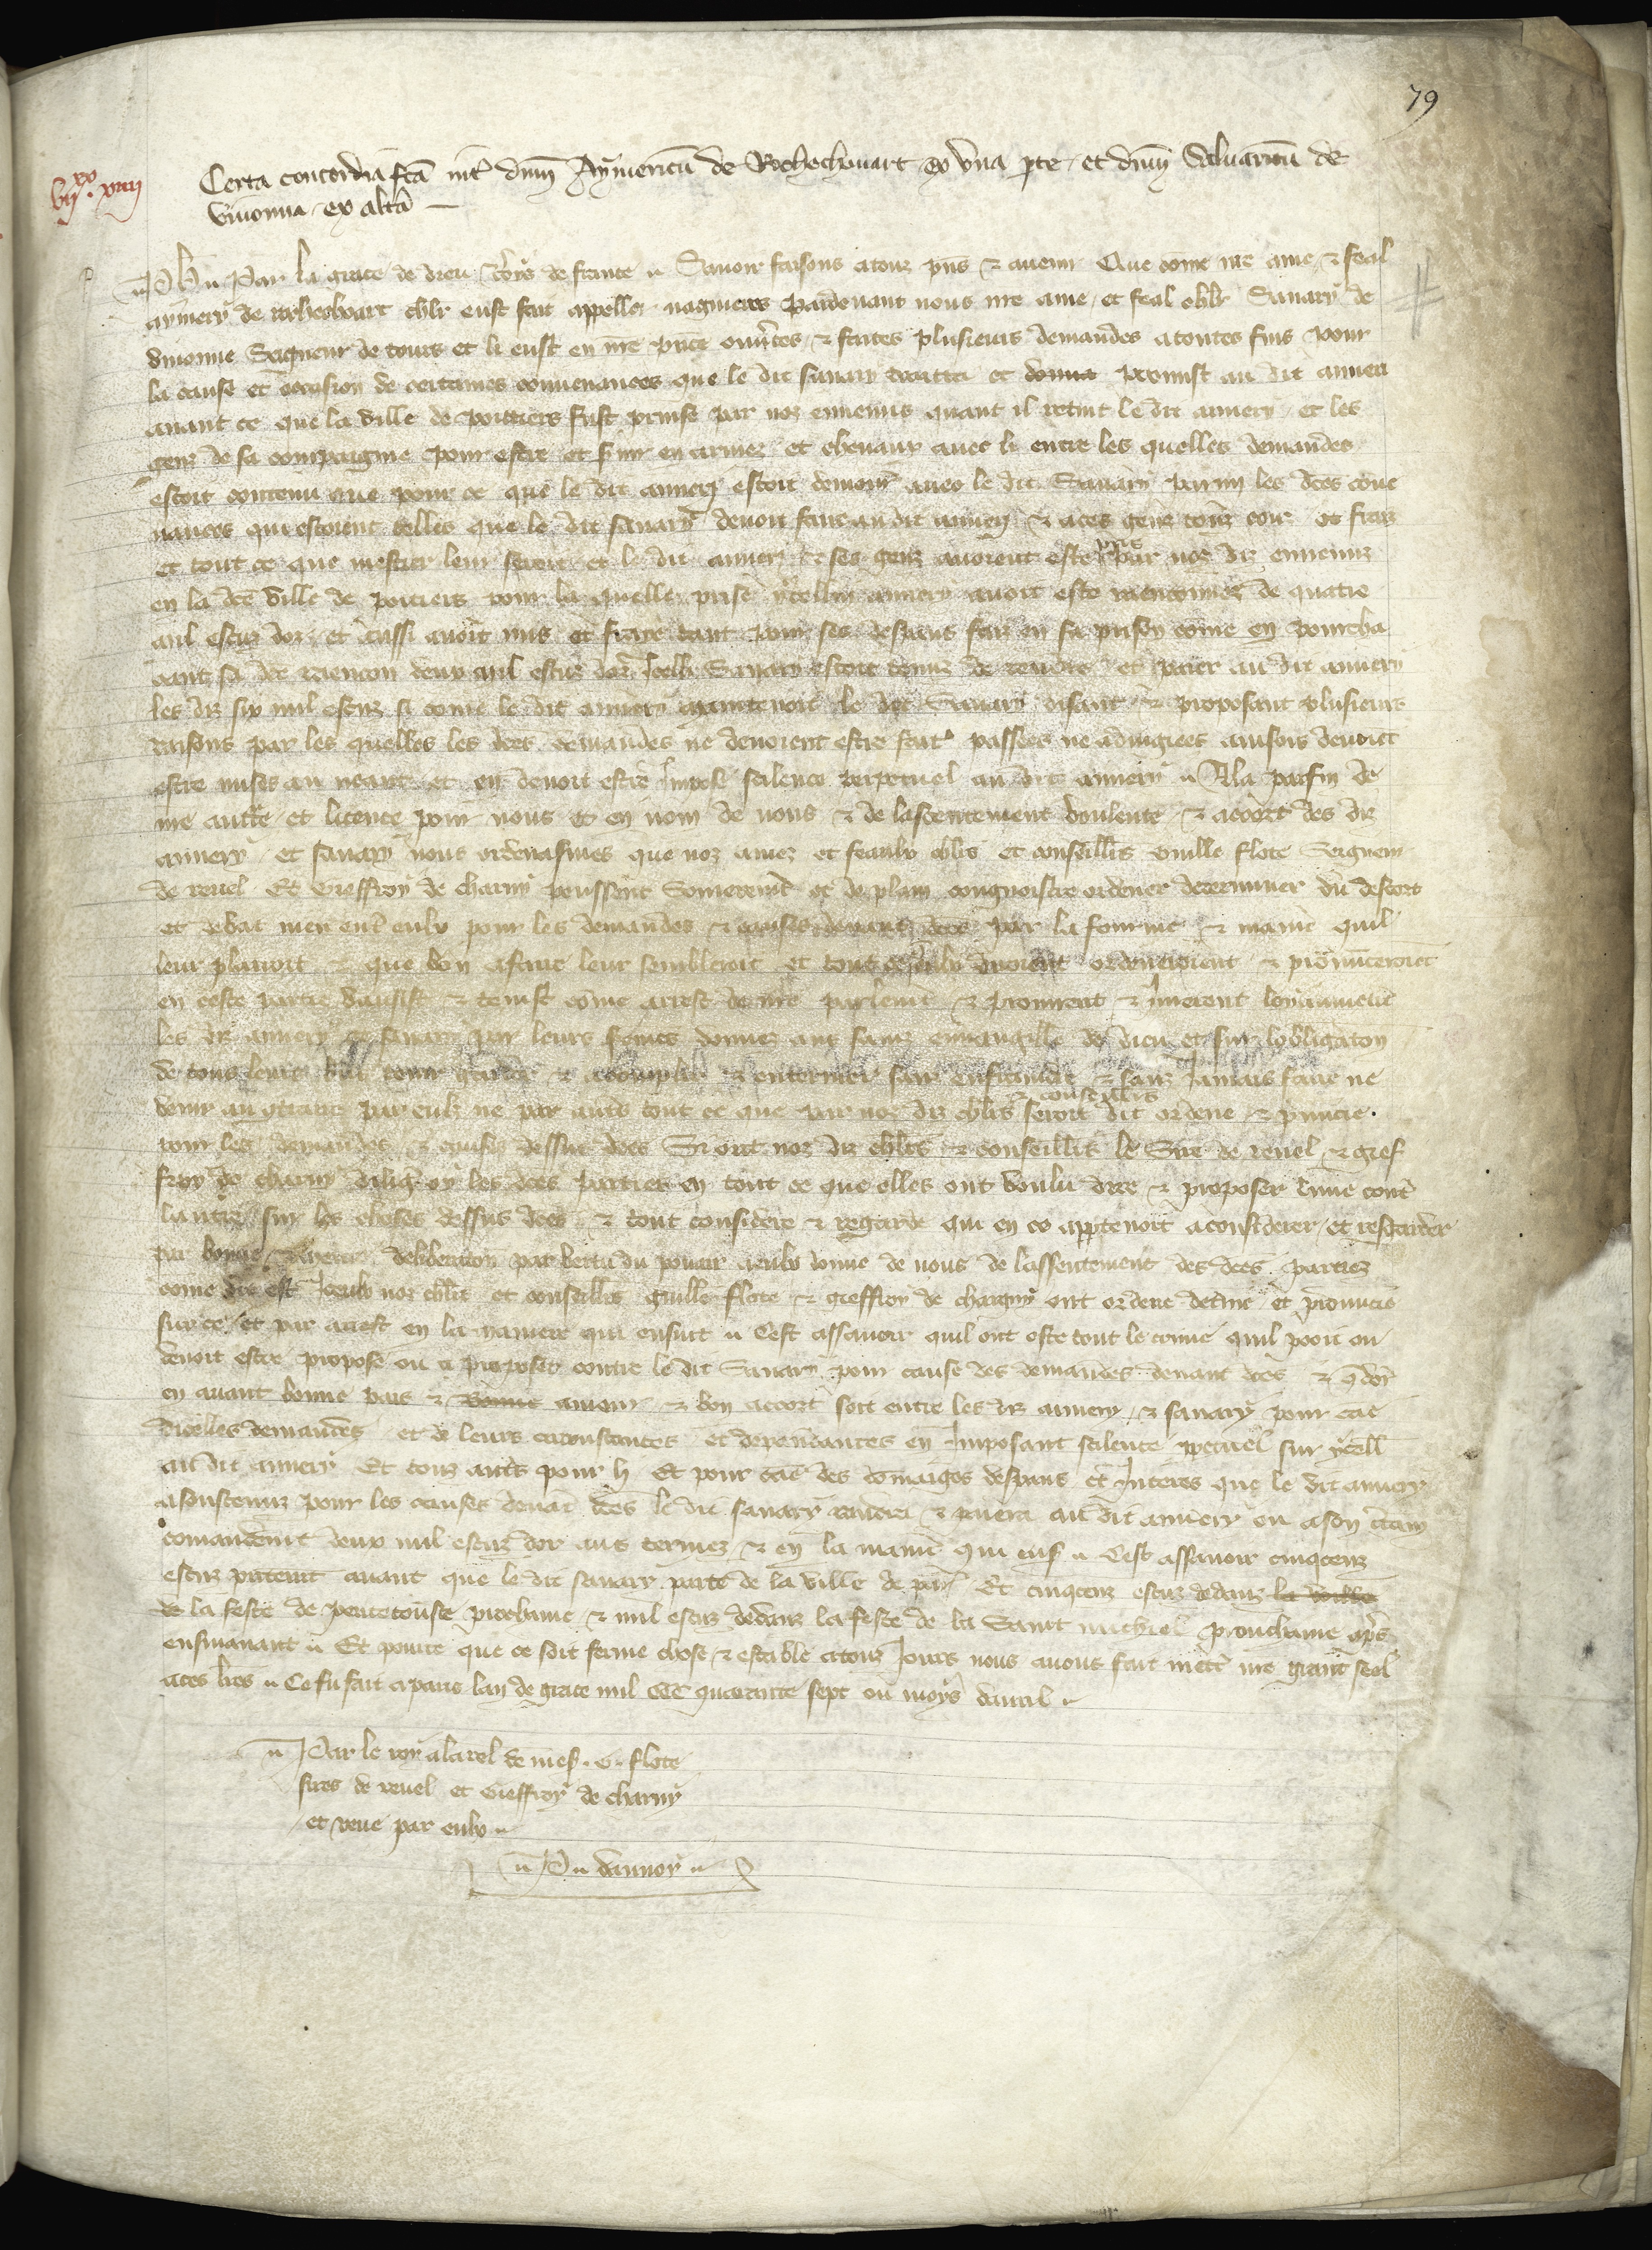 79
Certa concordia fca int dnm Aymericu de Rochechouart ex una pte et dnm Saluaricu de
viuonna ex altã
vijxx xiiij
Ph. Par la grace de dieu Roys de france Sauoir faisons a touz pns & auenir Que come nre ame & feal
aymery de rochechoart chlr eust fait appeller nagueres pardeuant nous nre ame et feal chlr Sauary de
viuonne Seigneur de tours et li eust en nre pnce ouutes & faites plusieurs demandes a toutes fins pour
la cause et occasion de certaines conuenances que le dit sauary traitta et donna promist au dit aimeri
auant ce que la ville de poittiers fust prinse par noz ennemis quant il retint le dit aimery et les
genz de sa compaignie pour estre et suir en armez et cheuaux auec li entre les quelles demandes
estoit contenu que pour ce que le dit aimery estoit demore auec le dit Sauary parmi les dces conue
nances qui estoient telles que le dit sauary deuoit faire au dit aimery & a ces genz touz couz et fraiz
et tout ce que mestier leur seroit et le dit aimery & ses genz auoient este pris par noz diz ennemis
en la dce ville de poitiers pour la quelle prise ycellui aimery auoit este raenconnez de quatre
mil escuz dor et aussi auoit mis et fraye tant pour ses despens faiz en sa prison come en pourcha
cant sa dce raencon deux mil escuz dor Icelli Sauary estoit tenuz de rendre et paier au dit aimery
les diz six mil escuz si come le dit aimery maintenoit le dit Sauary disant & proposant plusieurs
raisons par les quelles les dces demandes ne deuoient estre faites passees ne adiugiees ainsois deuoient
estre mises au neant et en deuoit estre Impose scilence perpetuel au dit aimery A la parfin de
nre auctte et licence pour nous et en nom de nous & de lassentement voulente & accort des diz
aimery et sauary nous ordenasmes que noz amez et feaulx chlrs et conseillrs Guille flote Seigneur
de reuel Et Geoffroy de charny peussent Somerement et de plain congnoistre ordener determiner du descort
et debat meu entre eulx pour les demandes & causes deuant dces par la fourme & manie quil
leur plairoit & que bon a faire leur sembleroit et tout ce que eulx diroient ordeneroient & pronunceroient
en ceste partie vausist & tenist come arrest de nre parlemt & promirent & Jurerent loyaument
les diz aimery et sauary par leurs foimes donnez aus sainz euuangille de dieu et sur lobligacon
de touz leurs biens tenir garder & acomplir & enteriner sanz enfraindre & sanz Jamais faire ne
venir au graire par eulz ne par autre tout ce que par noz diz chlrs & conseillrs seroit dit ordene & pnuncie
pour les demandes & causes dessus dces Si ont noz diz chlrs & conseillrs le Sire de reuel & gief
froy de charny dilig oy les dces parties en tout ce que elles ont voulu dire & proposer lune cont
lautre sur les choses dessus dces & tout considere & regarde qui en ce apptenoit a considerer et resgarder
par bonne & meure deliberacon par vertu du pouoir a eulx donne de nous de lassentement des dces parties
come dit est Iceulx noz chlrs et conseillrs guille flote & gieffroy de chargny ont ordene detmine et pronuncie
sur ce et par arrest en la maniere qui ensuit Cest assauoir quil ont oste tout le conue quil pooit ou
deuoit estre propose ou a proposer contre le dit Sauary pour cause des demandes deuant dces & que dores
en auant bonne pais & bonne amour & bon accort soit entre les diz aimery & sauary pour cae
dicelles demandes et de leurs circonstances et dependances en Imposant scilence ppetuel sur ycell
au dit aimery Et touz autres pour li Et pour cae des domaiges despens et Interes que le dit aimery
a soustenuz pour les causes deuant dces le dit sauary rendera & paiera au dit aimery ou a son ctain
comandemt deux mil escuz dor aus termez & en la manie qui ensuit Cest assauoir cinqcenz
escuz prtemt auant que le dit sauary parte de la ville de paris Et cinqcenz escuz dedanz la ville
de la feste de penthecouste prochaine & mil escuz dedanz la feste de la Saint michiel prouchaine apres
ensuiuant Et pour ce que ce soit ferme chose & estable a touz Jours nous auons fait mettre nre grant seel
a ces lres Ce fu fait a paris lan de grace mil CCC quarante sept ou moys dauril
Par le roy a la rel de mess. G. flote
sires de reuel et Gieffroy de charny
et veue par eulx
P. dannoy